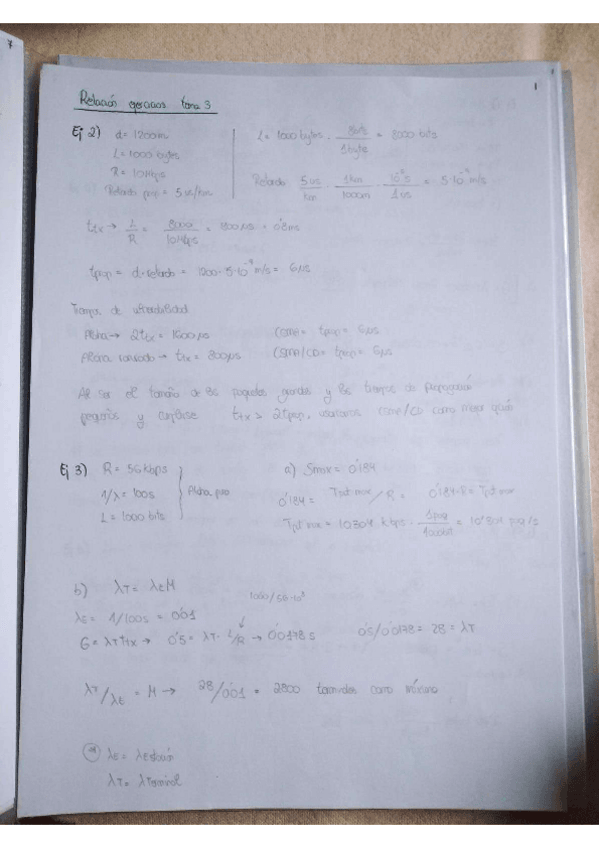 7
1
Relación ejercicios tema 3
Ej 2) d = 1200m
L = 1000 bytes
R = 10Mbps
Retardo prop = 5us/km
L = 1000 bytes · 8bits/1byte = 8000 bits
Retardo 5us/km · 1km/1000m · 10⁻⁶s/1us = 5·10⁻⁹ s
ttx → L/R = 8000/10Mbps = 800μs = 0'8ms
tprop = d·retardo = 1200·5·10⁻⁹ m/s = 6μs
Tiempos de vulnerabilidad
Aloha → 2ttx = 1600μs CSMA = tprop = 6μs
Aloha ranurado → ttx = 800μs CSMA/CD = tprop = 6μs
Al ser el tamaño de los paquetes grandes y los tiempos de propagación
pequeños y cumplirse ttx > 2tprop, usaríamos CSMA/CD como mejor
Ej 3) R = 56kbps
1/λ = 100s
L = 1000 bits
Aloha puro
a) Smax = 0'184
0'184 = Tput max / R = 0'184·R = Tput max
Tput max = 10304 kbps · 1paq/1000bit = 10'304 paq/s
b) λT = λE M
1000/56·10³
λE = 1/100s = 0'01
G = λT ttx → 0'5 = λT · L/R → 0'0178 s 0'5/0'0178 = 28 = λT
λT/λE = M → 28/0'01 = 2800 terminales como máximo
λE = λEstación
λT = λTerminal